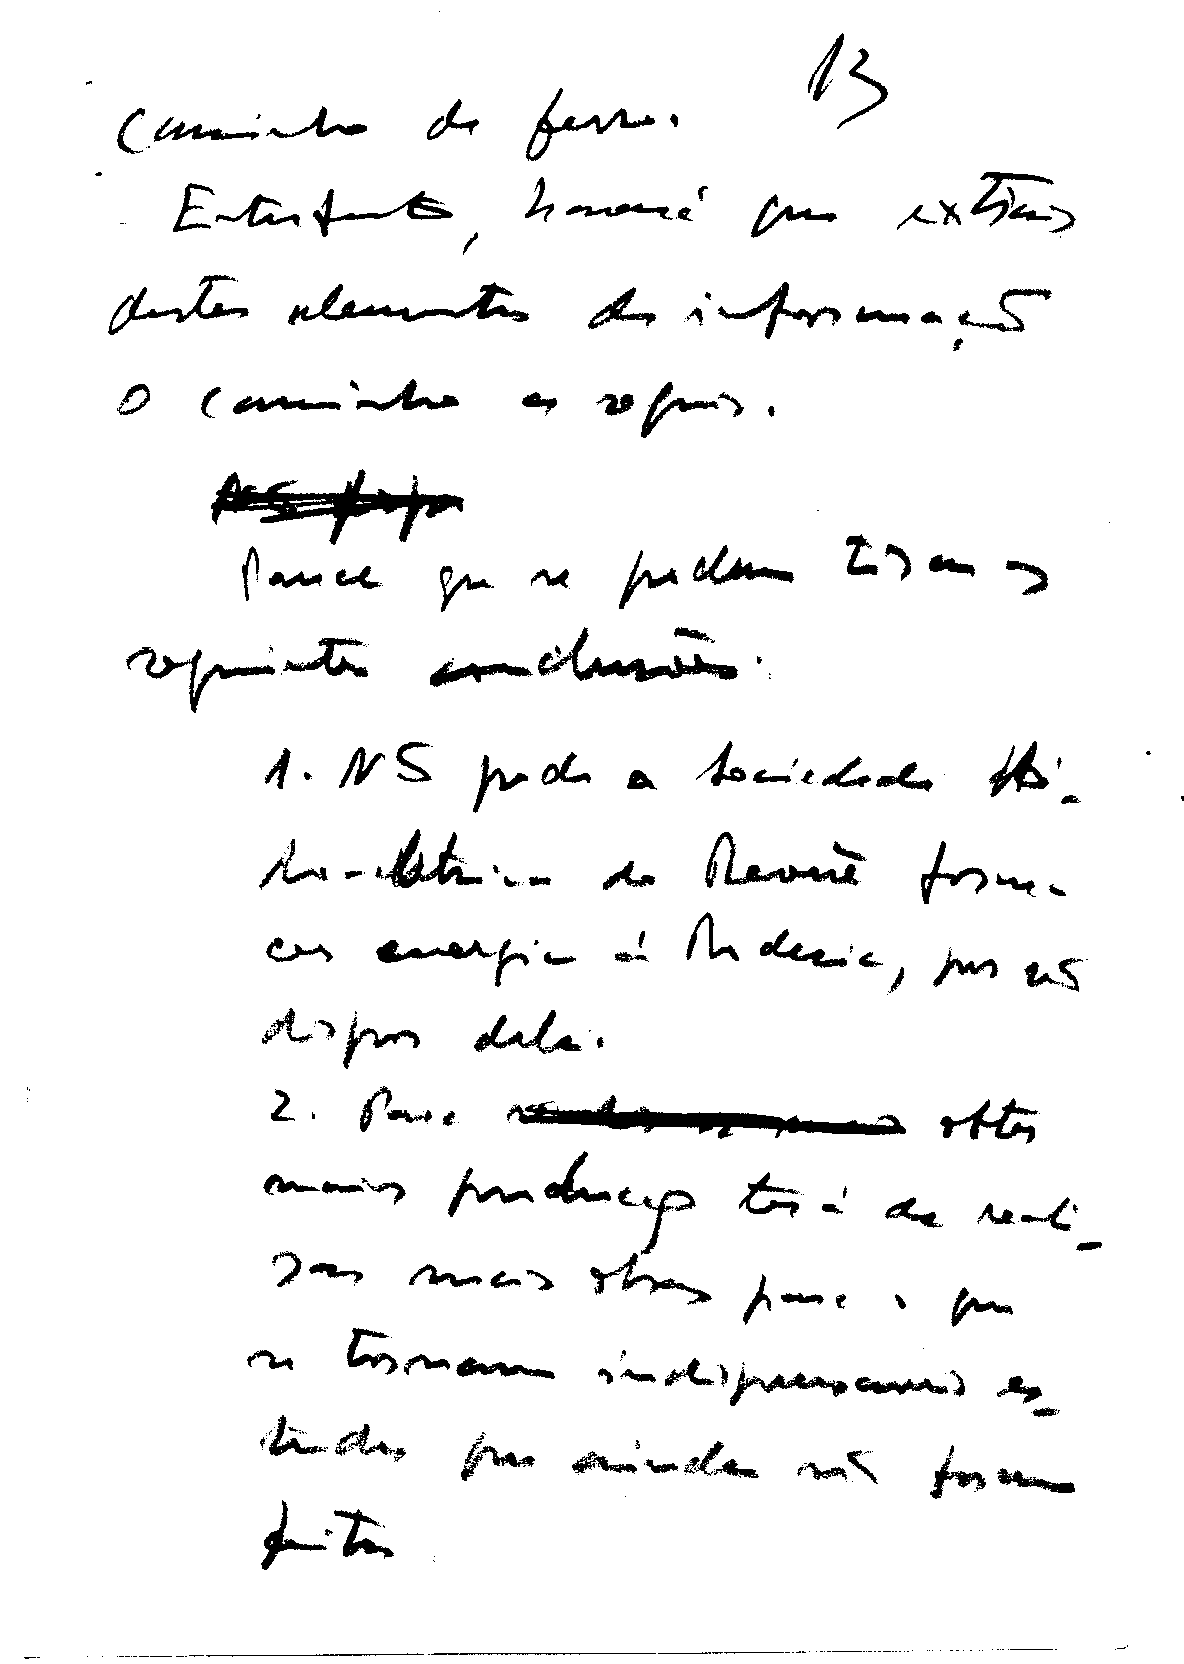 13
caminho de ferro.
Entretanto, haverá que extrair
destes elementos de informação
o caminho a seguir.
Parece que se podem tirar as
seguintes conclusões.
1. Não pode a Sociedade Hi-
dro-eléctrica do Revuè forne-
cer energia à Rodesia, por não
dispor dela.
2. Para obter
maior produção terá de reali-
zar mais obras para o que
se tornam indispensaveis es-
tudos que ainda não foram
feitos